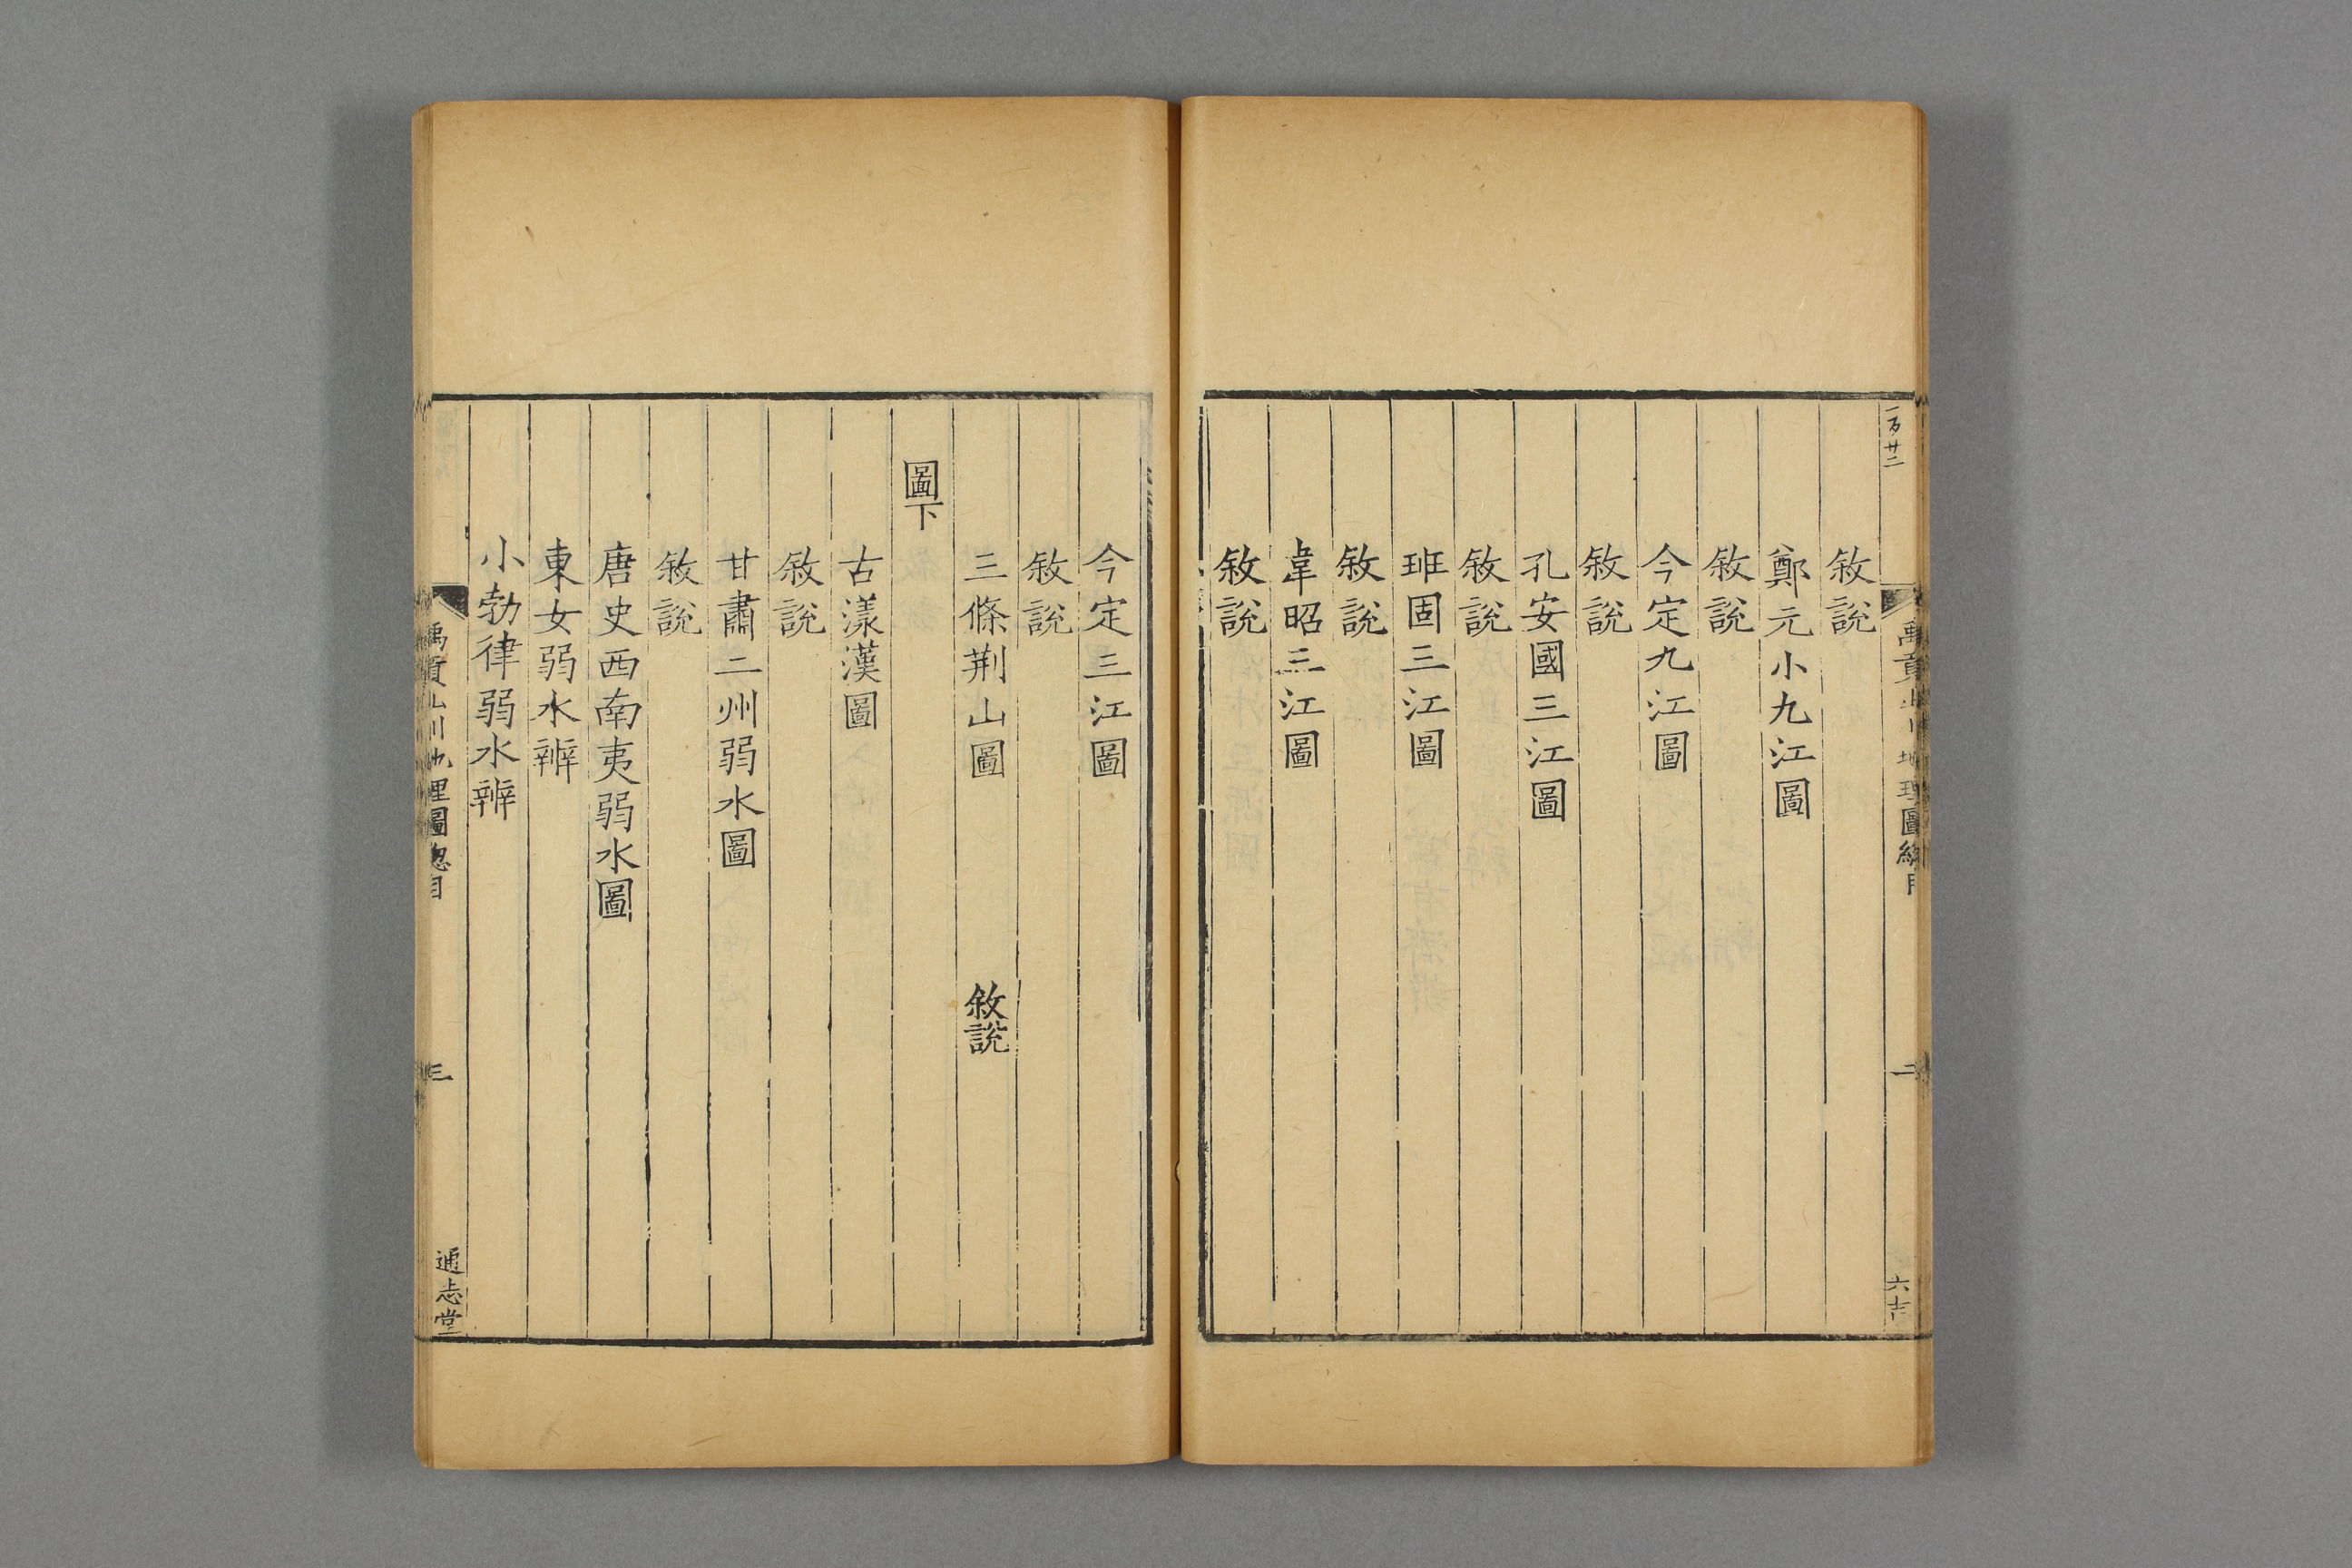 一百廿二
禹貢山川地理圖總目
二
六吉
敘說
鄭元小九江圖
敘說
今定九江圖
敘說
孔安國三江圖
敘說
班固三江圖
敘說
韋昭三江圖
敘說
今定三江圖
敘說
三條荆山圖
敘說
圖下
古漾漢圖
敘說
甘肅二州弱水圖
敘說
唐史西南夷弱水圖
東女弱水辨
小勃律弱水辨
禹貢山川地理圖總目
三
通志堂